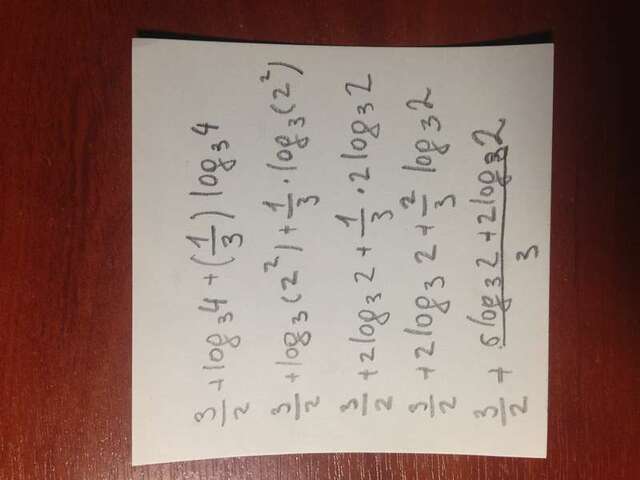 3/2 + log₃4 + (1/3) log₃4
3/2 + log₃(2²) + 1/3 · log₃(2²)
3/2 + 2log₃2 + 1/3 · 2log₃2
3/2 + 2log₃2 + 2/3 log₃2
3/2 + (6log₃2 + 2log₃2)/3